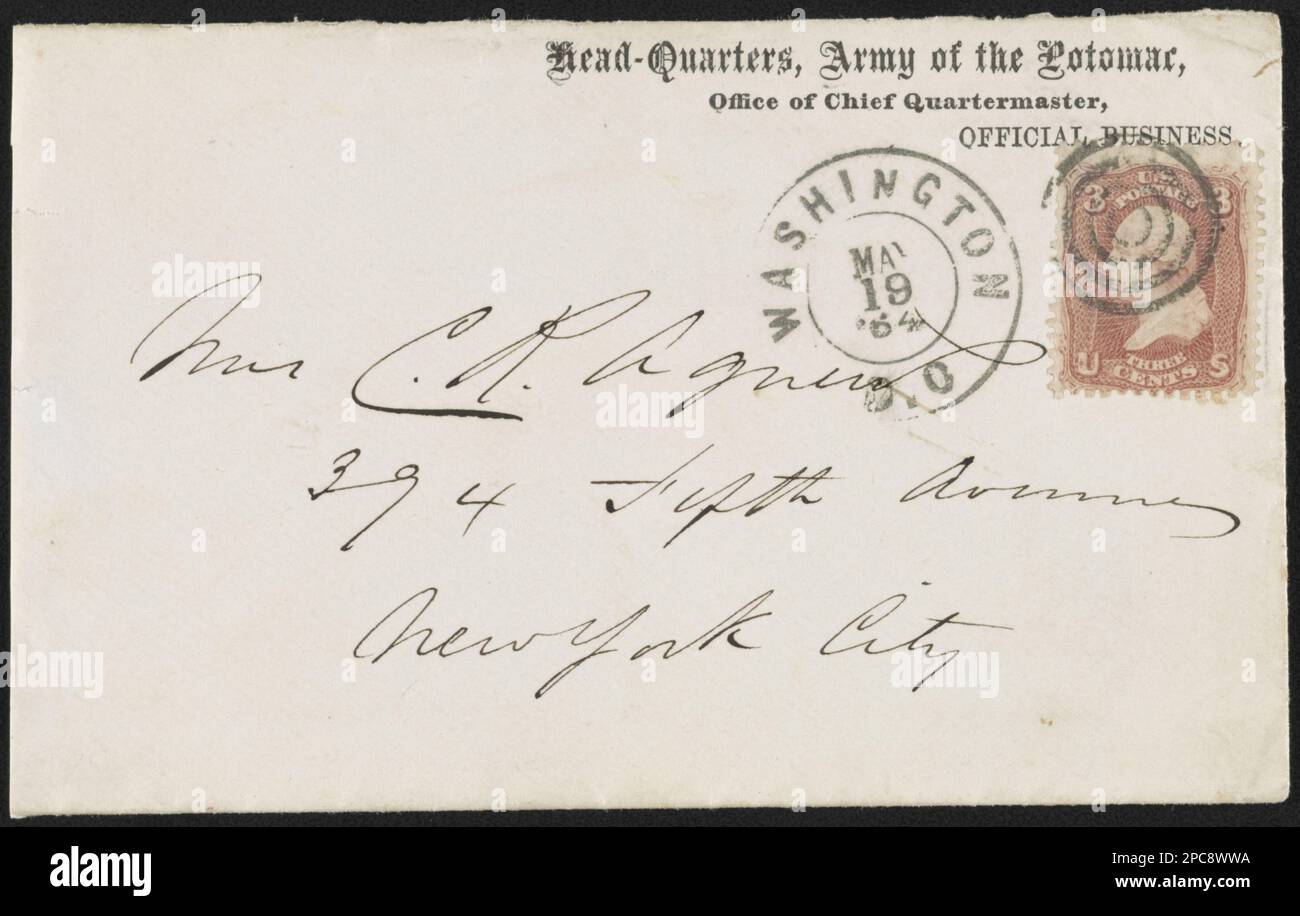 Head-Quarters, Army of the Potomac,
Office of Chief Quartermaster,
OFFICIAL BUSINESS.
WASHINGTON
MAY
19
'64
D.C
U.S.
POSTAGE
3 3
U S
THREE
CENTS
Mrs C. R. Agnew
394 Fifth Avenue
New York City
alamy
Image ID: 2PC8WWA
www.alamy.com